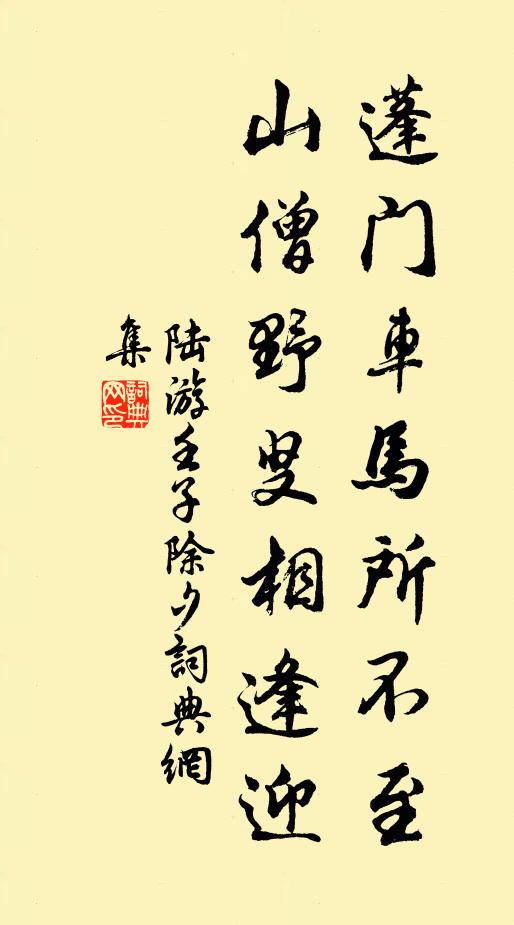 蓬门車馬所不至
山僧野叟相逢迎
陸游壬子除夕詞典網
集
詞典
网印